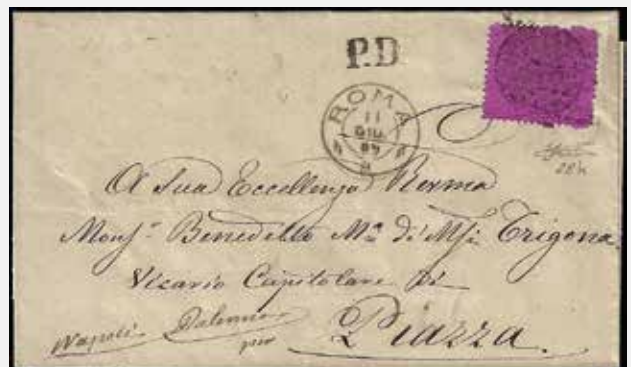 P.D
ROMA
11
GIU.
69
A Sua Eccellenza Rev̄ma
Monsr. Benedetto Ma. Di Msi. Trigona
Vicario Capitolare di
Piazza.
Napoli Palermo
per